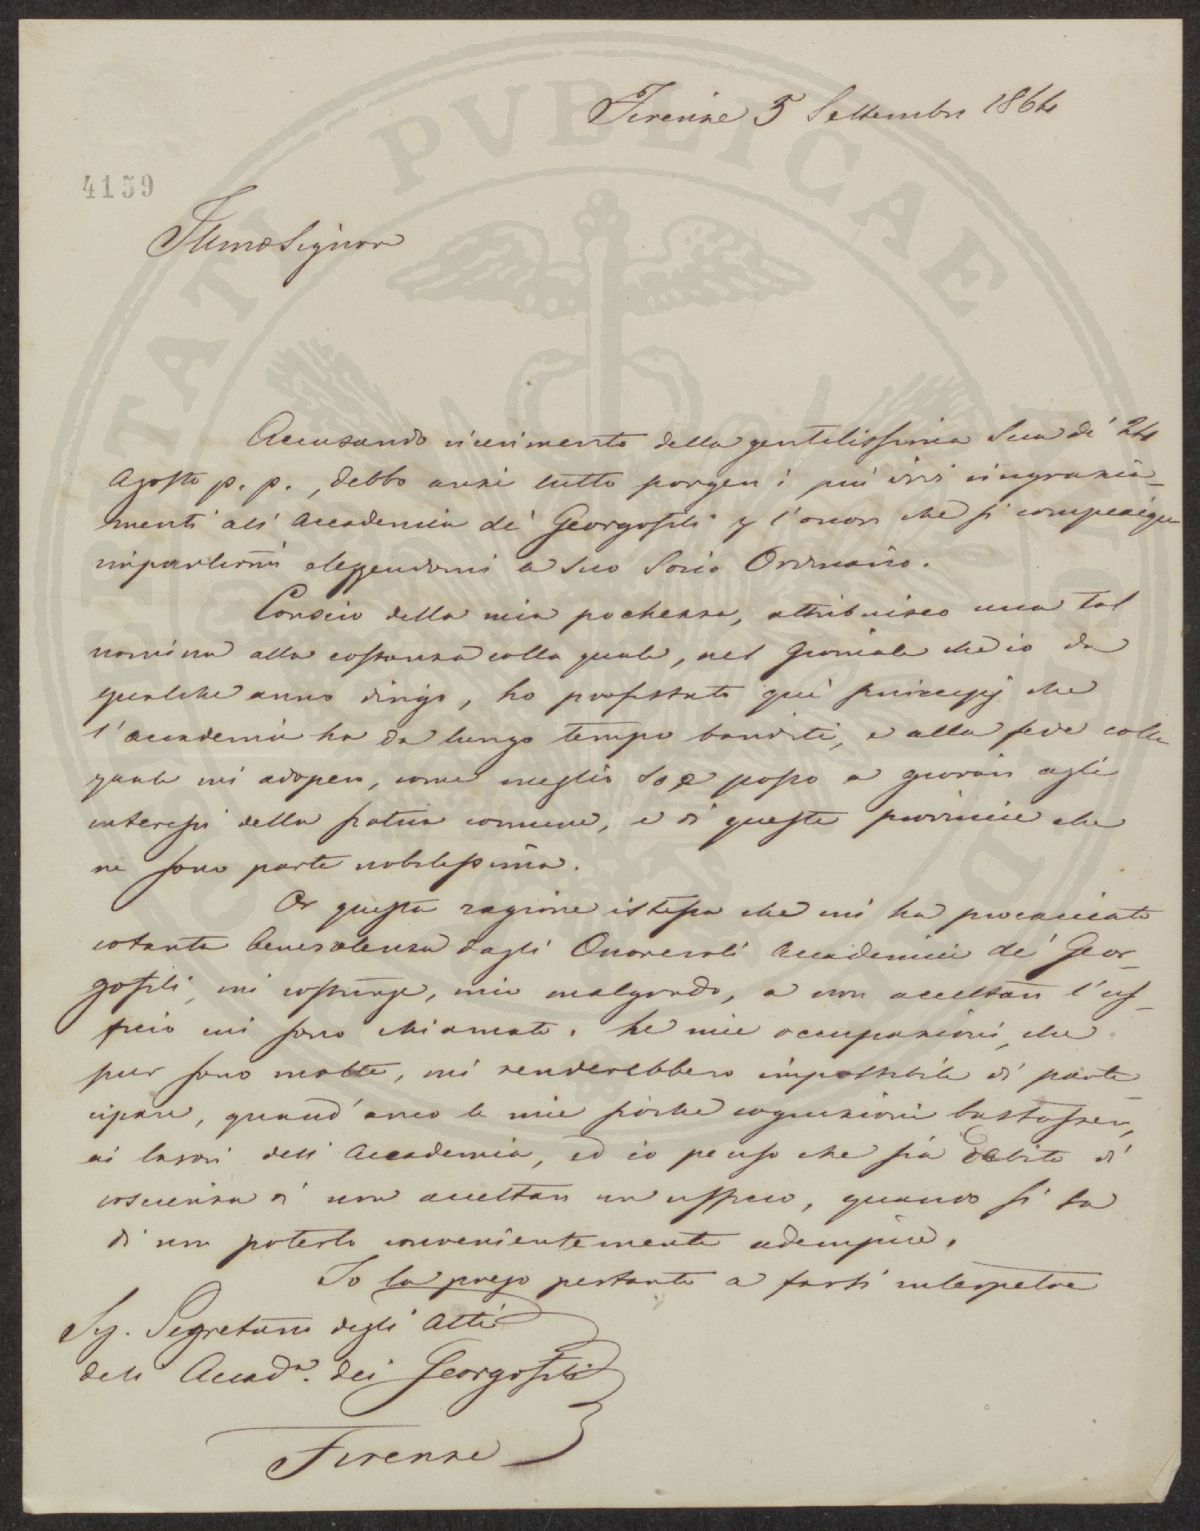 Firenze 5 Settembre 1864
4159
Illmo Signore
Accusando ricevimento della gentilissima Sua di 24
Agosto p. p., debbo anzi tutto porgere i più vivi ringrazia-
menti all' Accademia de' Georgofili p l'onore che si compiacque
impartirmi eleggendomi a suo Socio Ordinario.
Conscio della mia pochezza, attribuisco una tal
nomina alla costanza colla quale, nel Giornale che io da
qualche anno dirigo, ho professato quei principj che
l'Accademia ha da lungo tempo banditi, e alla fede colla
quale mi adopero, come meglio so e posso a giovare agli
interessi della patria comune, e di queste provincie che
ne sono parte nobilissima.
Or questa ragione istessa che mi ha procacciato
cotanta benevolenza dagli Onorevoli Accademici de' Geor-
gofili, mi costringe, mio malgrado, a non accettare l'uf-
ficio cui sono chiamato. Le mie occupazioni, che
pur sono molte, mi renderebbero impossibile di parte-
cipare, quand'anco le mie poche cognizioni bastassero,
ai lavori dell' Accademia, ed io penso che sia debito di
coscienza di non accettare un ufficio, quando si sa
di non poterlo convenientemente adempire.
Io la prego pertanto a farsi interpetre
Sig. Segretario degli Atti
dell Accad.a dei Georgofili
Firenze
PVBLICAE